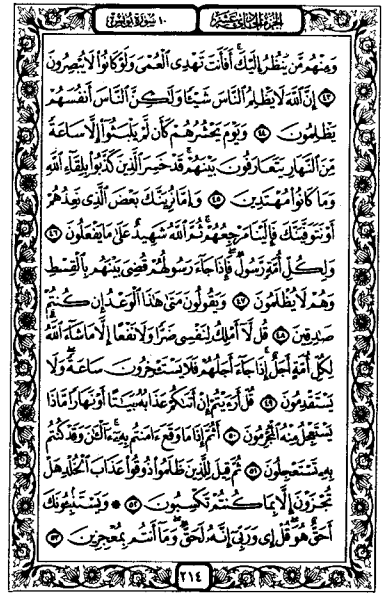 ١٠ سورة يونس
الجزء الحادي عشر
وَمِنْهُم مَّن يَنظُرُ إِلَيْكَ أَفَأَنتَ تَهْدِى ٱلْعُمْىَ وَلَوْ كَانُوا۟ لَا يُبْصِرُونَ
٤٣ إِنَّ ٱللَّهَ لَا يَظْلِمُ ٱلنَّاسَ شَيْـًٔا وَلَـٰكِنَّ ٱلنَّاسَ أَنفُسَهُمْ
يَظْلِمُونَ ٤٤ وَيَوْمَ يَحْشُرُهُمْ كَأَن لَّمْ يَلْبَثُوٓا۟ إِلَّا سَاعَةً
مِّنَ ٱلنَّهَارِ يَتَعَارَفُونَ بَيْنَهُمْ قَدْ خَسِرَ ٱلَّذِينَ كَذَّبُوا۟ بِلِقَآءِ ٱللَّهِ
وَمَا كَانُوا۟ مُهْتَدِينَ ٤٥ وَإِمَّا نُرِيَنَّكَ بَعْضَ ٱلَّذِى نَعِدُهُمْ
أَوْ نَتَوَفَّيَنَّكَ فَإِلَيْنَا مَرْجِعُهُمْ ثُمَّ ٱللَّهُ شَهِيدٌ عَلَىٰ مَا يَفْعَلُونَ ٤٦
وَلِكُلِّ أُمَّةٍ رَّسُولٌ فَإِذَا جَآءَ رَسُولُهُمْ قُضِىَ بَيْنَهُم بِٱلْقِسْطِ
وَهُمْ لَا يُظْلَمُونَ ٤٧ وَيَقُولُونَ مَتَىٰ هَـٰذَا ٱلْوَعْدُ إِن كُنتُمْ
صَـٰدِقِينَ ٤٨ قُل لَّآ أَمْلِكُ لِنَفْسِى ضَرًّا وَلَا نَفْعًا إِلَّا مَا شَآءَ ٱللَّهُ
لِكُلِّ أُمَّةٍ أَجَلٌ إِذَا جَآءَ أَجَلُهُمْ فَلَا يَسْتَـْٔخِرُونَ سَاعَةً وَلَا
يَسْتَقْدِمُونَ ٤٩ قُلْ أَرَءَيْتُمْ إِنْ أَتَىٰكُمْ عَذَابُهُۥ بَيَـٰتًا أَوْ نَهَارًا مَّاذَا
يَسْتَعْجِلُ مِنْهُ ٱلْمُجْرِمُونَ ٥٠ أَثُمَّ إِذَا مَا وَقَعَ ءَامَنتُم بِهِۦٓ ءَآلْـَٔـٰنَ وَقَدْ كُنتُم
بِهِۦ تَسْتَعْجِلُونَ ٥١ ثُمَّ قِيلَ لِلَّذِينَ ظَلَمُوا۟ ذُوقُوا۟ عَذَابَ ٱلْخُلْدِ هَلْ
تُجْزَوْنَ إِلَّا بِمَا كُنتُمْ تَكْسِبُونَ ٥٢ ۞ وَيَسْتَنۢبِـُٔونَكَ
أَحَقٌّ هُوَ قُلْ إِى وَرَبِّىٓ إِنَّهُۥ لَحَقٌّ وَمَآ أَنتُم بِمُعْجِزِينَ ٥٣
٢١٤